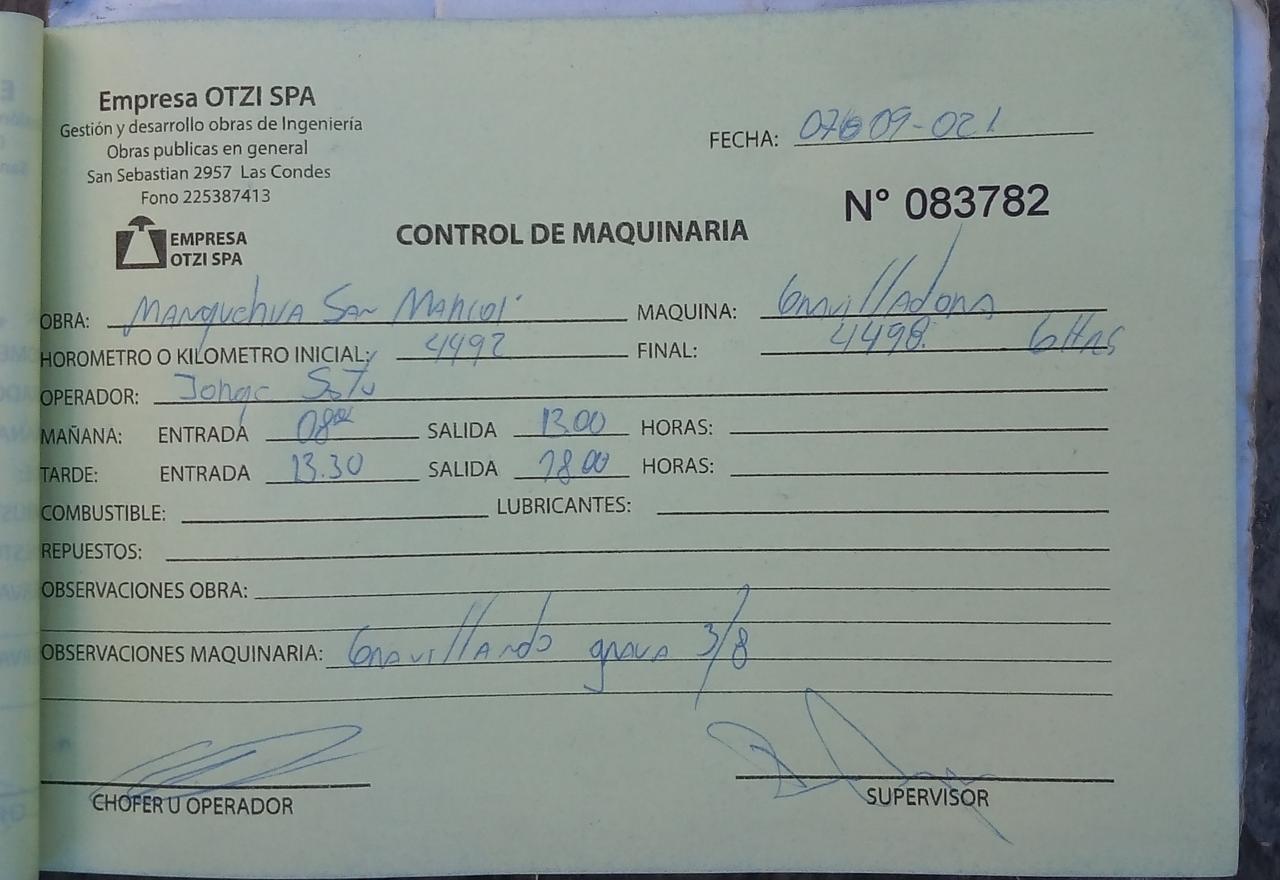 Empresa OTZI SPA
Gestión y desarrollo obras de Ingeniería
Obras publicas en general
San Sebastian 2957 Las Condes
Fono 225387413
EMPRESA
OTZI SPA
FECHA: 09-021
N° 083782
CONTROL DE MAQUINARIA
OBRA: San MAQUINA: Gravilladora
HOROMETRO O KILOMETRO INICIAL: 4492 FINAL: 4498 6 HRS
OPERADOR: Jorge Soto
MAÑANA: ENTRADA 08 SALIDA 13.00 HORAS:
TARDE: ENTRADA 13.30 SALIDA 18.00 HORAS:
COMBUSTIBLE: LUBRICANTES:
REPUESTOS:
OBSERVACIONES OBRA:
OBSERVACIONES MAQUINARIA: Gravillando grava 3/8
CHOFER U OPERADOR SUPERVISOR